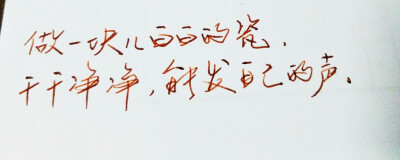 做一块儿白白的瓷，
干干净净，能发自己的声。